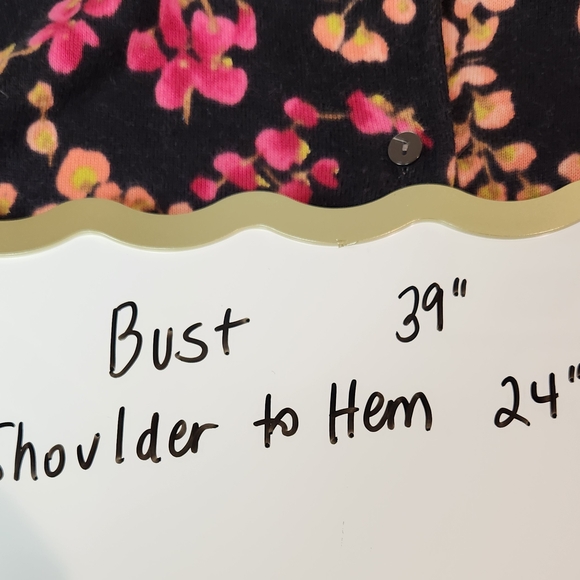 Bust 39"
Shoulder to Hem 24"